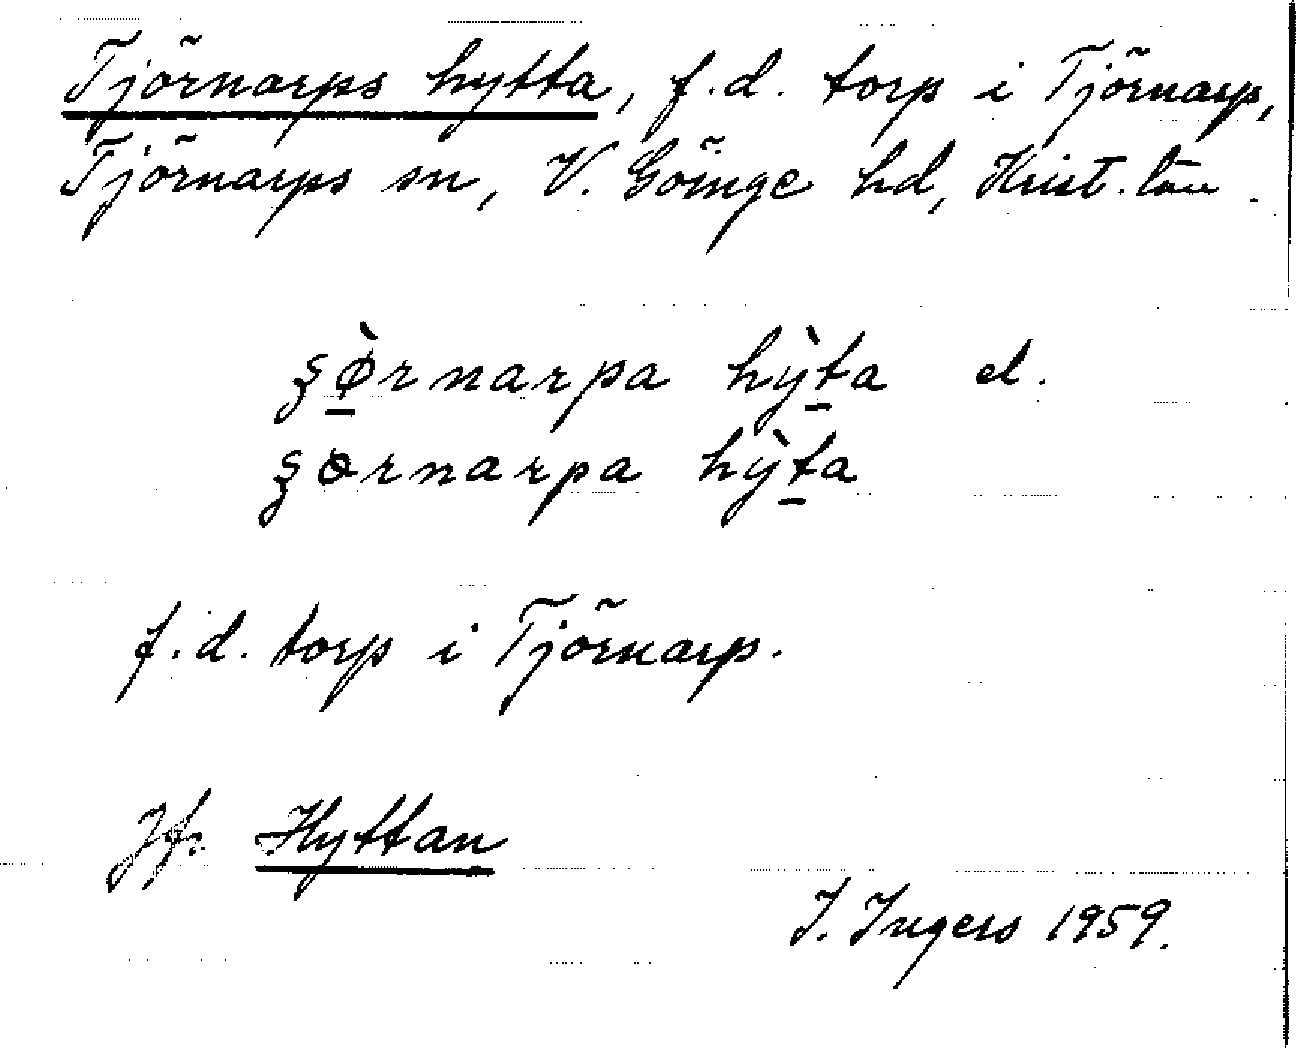 Tjörnarps hytta, f.d. torp i Tjörnarp,
Tjörnarps sn, V. Göinge hd, Krist. län.
ʂø̠̀rnarpa hỳt̠a el.
ʂɵrnarpa hỳt̠a
f.d. torp i Tjörnarp.
Jfr Hyttan
I. Ingers 1959.